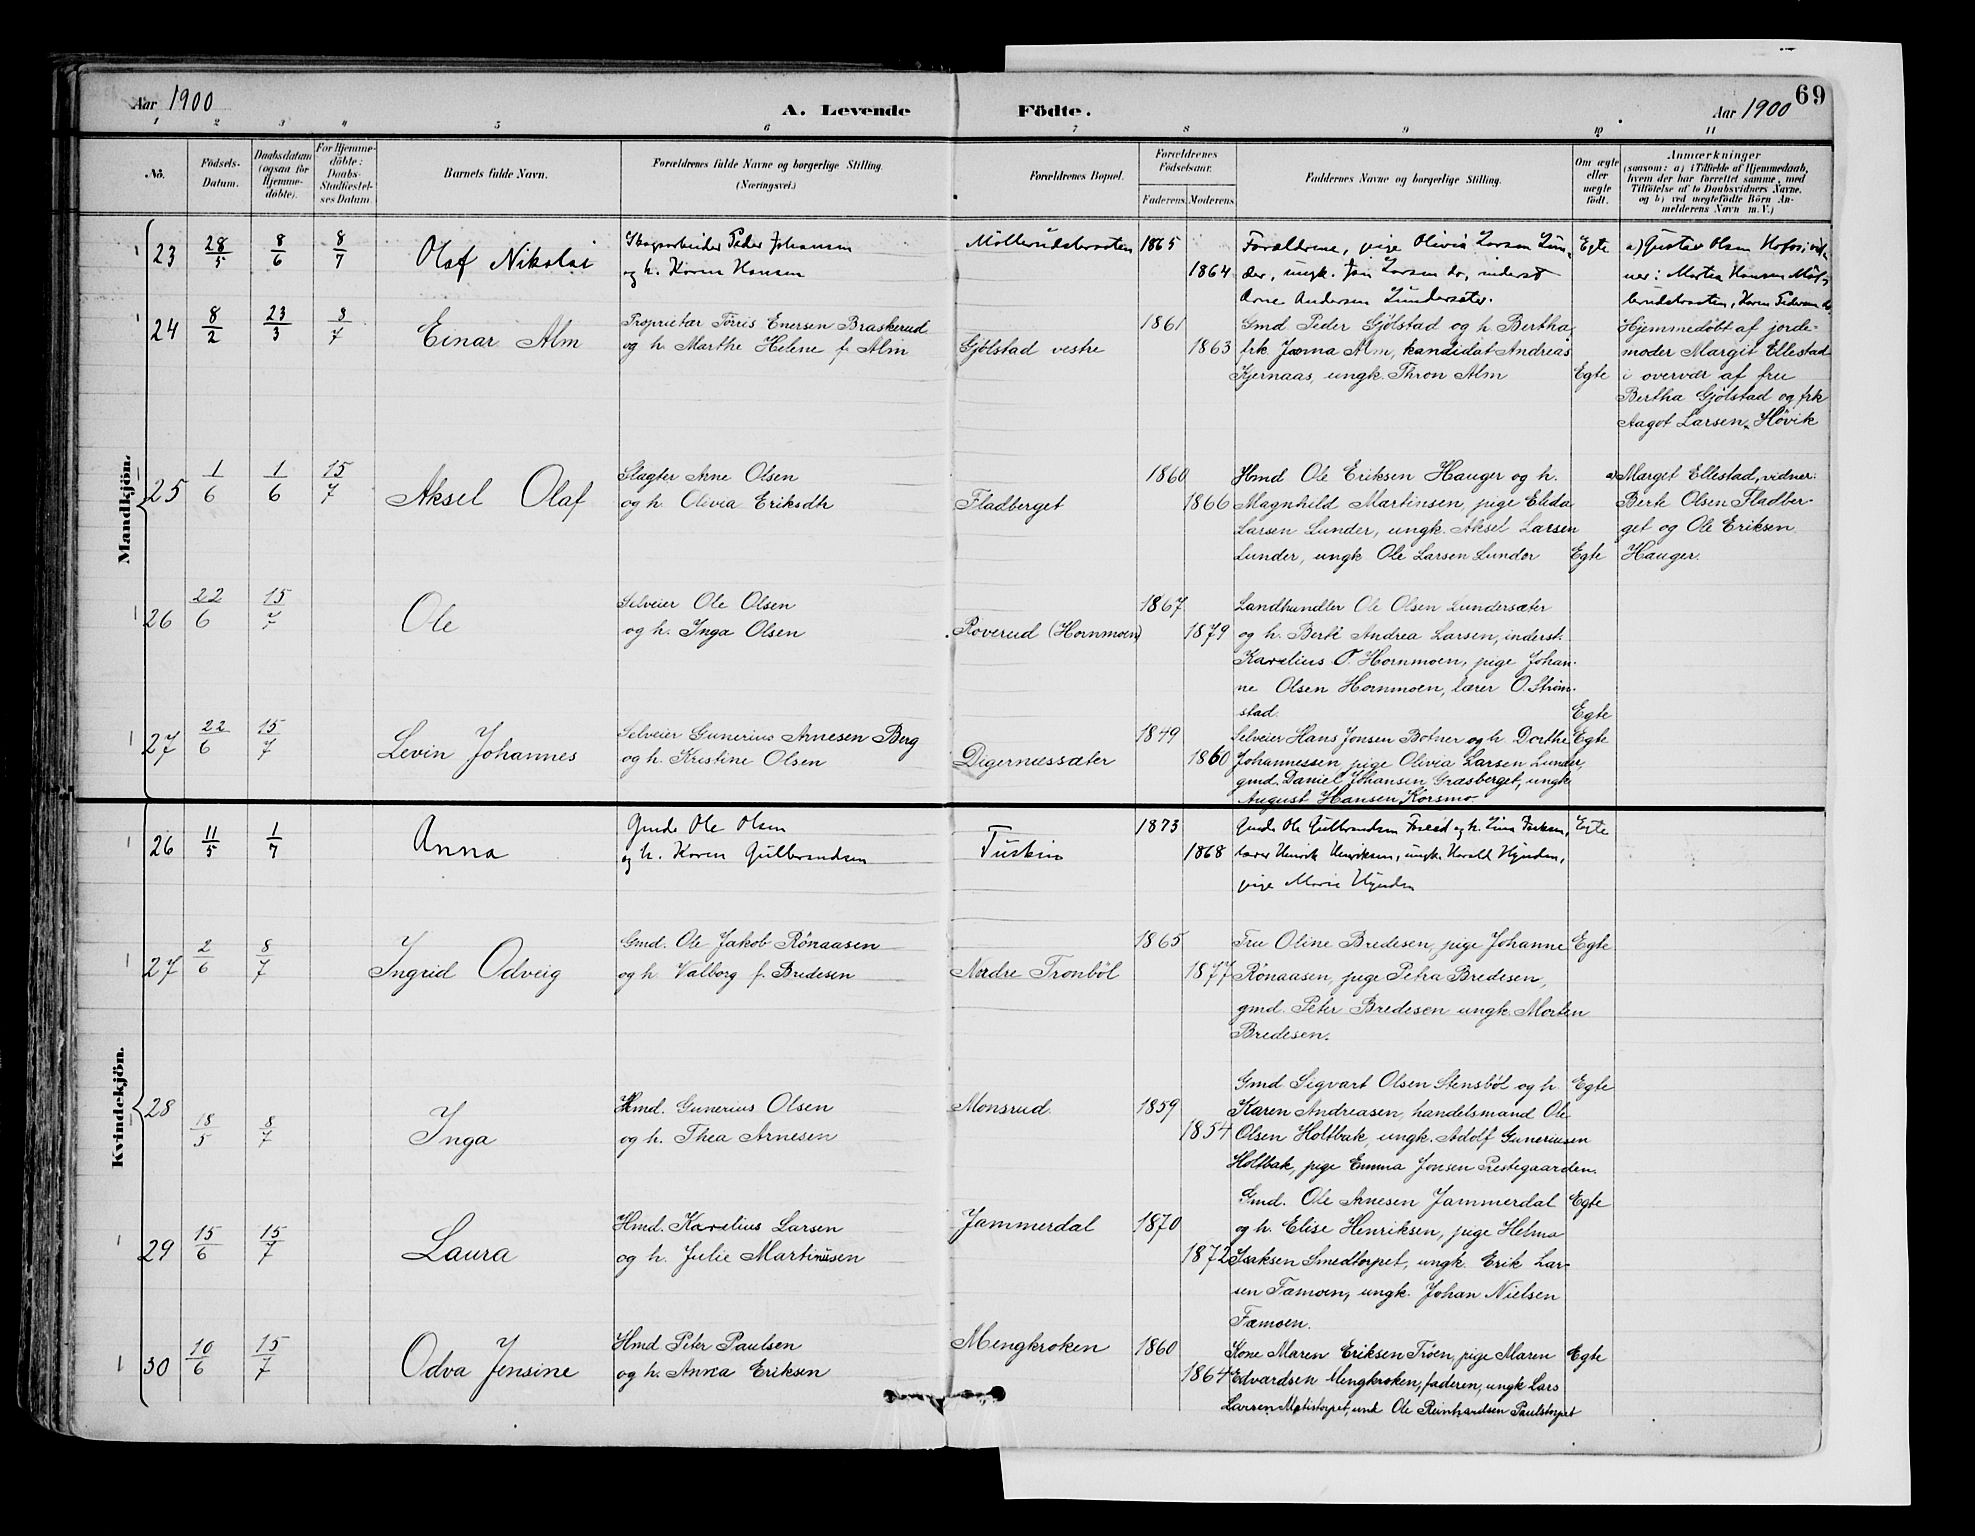 69
Aar 1900
A. Levende Födte.
Aar 1900
1 2 3 4 5 6 7 8 9 10 11
No.
Födsels-Datum.
Daabsdatum (ogsaa for Hjemmedöbte).
For Hjemmedöbte: Daabs-Stadfæstelses Datum
Barnets fulde Navn.
Forældrenes fulde Navne og borgerlige Stilling.
(Næringsvei.)
Forældrenes Bopæl.
Forældrenes Födselsaar.
Faderens. Moderens.
Faddernes Navne og borgerlige Stilling.
Om ægte eller uægte födt.
Anmærkninger
(saasom: a) i Tilfælde af Hjemmedaab, hvem der har forrettet samme, med Tilföielse af to Daabsvidners Navne, og b) ved uægtefödte Börn Anmelderens Navn m. V.)
Mandkjön.
23 28/5 8/6 8/7 Olaf Nikolai
Skogsarbeider Peder Johansen
og h. Karen Hansen
Møllerudsbraaten 1865 1864
Forældrene, pige Olivia Larsen Lun-
der, ungk. Larsen do, inderst
Arne Andersen Lundersæter.
Egte
a) Gustav Olsen Hofos; vid-
ner: Martea Hansen Møl-
lerudsbraaten, Karen Pedersen do
24 8/2 23/3 8/7 Einar Alm
Proprietær Törris Enersen Braskerud
og h. Marthe Helene f. Alm
Gjølstad vestre 1861 1863
Gmd Peder Gjølstad og h. Bertha,
frk. Jxxna Alm, kandidat Andreas
Kjernaas, ungk. Thron Alm
Egte
Hjemmedøbt af jorde-
moder Margit Ellestad
i overvær af fru
Bertha Gjølstad og frk
Aagot Larsen, Høvik
25 1/6 1/6 15/7 Aksel Olaf
Slagter Arne Olsen
og h. Olivia Eriksdtr
Fladberget 1860 1866
Hmd Ole Eriksen Hauger og h.
Magnhild Martinsen, pige Elida
Larsen Lunder, ungk. Aksel Larsen
Lunder, ungk Ole Larsen Lunder
Egte
a) Marget Ellestad, vidner:
Berte Olsen Fladber-
get og Ole Eriksen
Hauger.
26 22/6 15/7 Ole
Selveier Ole Olsen
og h. Inga Olsen
Roverud (Hornmoen) 1867 1879
Landhandler Ole Olsen Lundersæter
og h. Berte Andrea Larsen, inderst.
Karelius O. Hornmoen, pige Johan-
ne Olsen Hornmoen, lærer O. Strøm-
stad.
Egte
27 22/6 15/7 Levin Johannes
Selveier Gunerius Arnesen Berg
og h. Kristine Olsen
Digernæssæter 1849 1860
Selveier Hans Jonsen Botner og h. Dorthe
Johannessen, pige Olivia Larsen Lunder,
gmd. Daniel Johansen Græsberget, ungk
August Hansen Korsmo.
Egte
Kvindekjön.
26 11/5 1/7 Anna
Gmd. Ole Olsen
og h. Karen Gulbrandsen
1873 1868
Gmd. Ole Gulbrandsen og h. Lina
lærer Henrik Henriksen, ungk. Harald Hynden,
pige Marie Hynden
Egte
27 2/6 8/7 Ingrid Odveig
Gmd. Ole Jakob Rönaasen
og h Valborg f. Bredesen
Nordre Tronbøl 1865 1877
Fru Oline Bredesen, pige Johanne
Rönaasen, pige Petra Bredesen,
gmd. Peter Bredesen ungk. Morten
Bredesen.
Egte
28 18/5 8/7 Inga
Hmd. Gunerius Olsen
og h. Thea Arnesen
Monsrud. 1859 1854
Gmd Sigvart Olsen Stensbøl og h.
Karen Andreasen, handelsmand Ole
Olsen Holtbak, ungk. Adolf Guneriusen
Holtbak, pige Emma Jonsen Prestegaarden.
Egte
29 15/6 15/7 Laura
Hmd. Karelius Larsen
og h. Julie Martinusen
Jammerdal 1870 1872
Gmd. Ole Arnesen Jammerdal
og h. Elise Henriksen, pige Helma
Isaksen Smedtorpet, ungk. Erik Lar-
sen Famoen, ungk. Johan Nielsen
Famoen.
Egte
30 10/6 15/7 Odva Jensine
Hmd Peter Paulsen
og h. Anna Eriksen
Mengkroken 1860 1864
Kone Maren Eriksen Trøen, pige Maren
Edvardsen Mengkroken, faderen, ungk Lars
Larsen Matistorpet, unk Ole Reinhardsen Paulstorpet
Egte